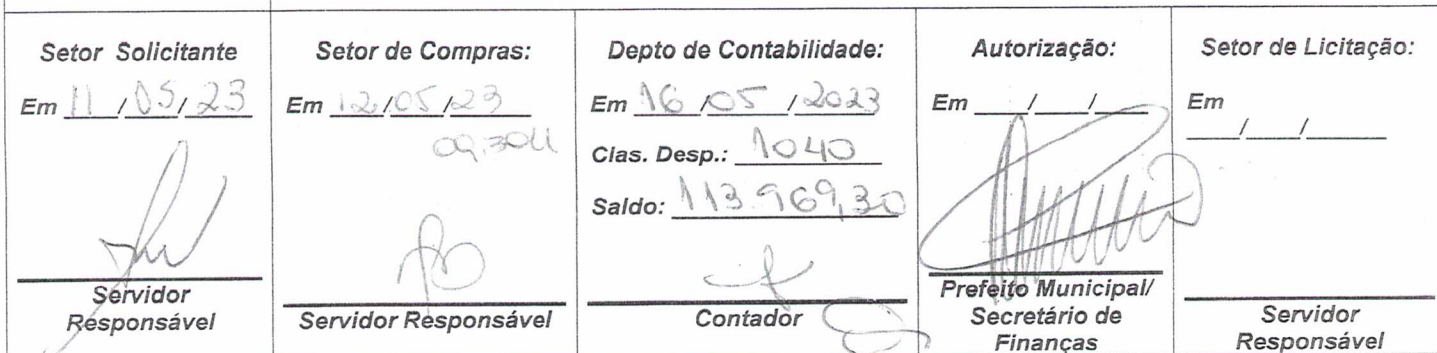 Setor Solicitante
Em 11/05/23
Servidor
Responsável
Setor de Compras:
Em 12/05/23
09:30h
Servidor Responsável
Depto de Contabilidade:
Em 16/05/2023
Clas. Desp.: 1040
Saldo: 113.969,30
Contador
Autorização:
Em ___/___/___
Prefeito Municipal/
Secretário de
Finanças
Setor de Licitação:
Em
___/___/___
Servidor
Responsável